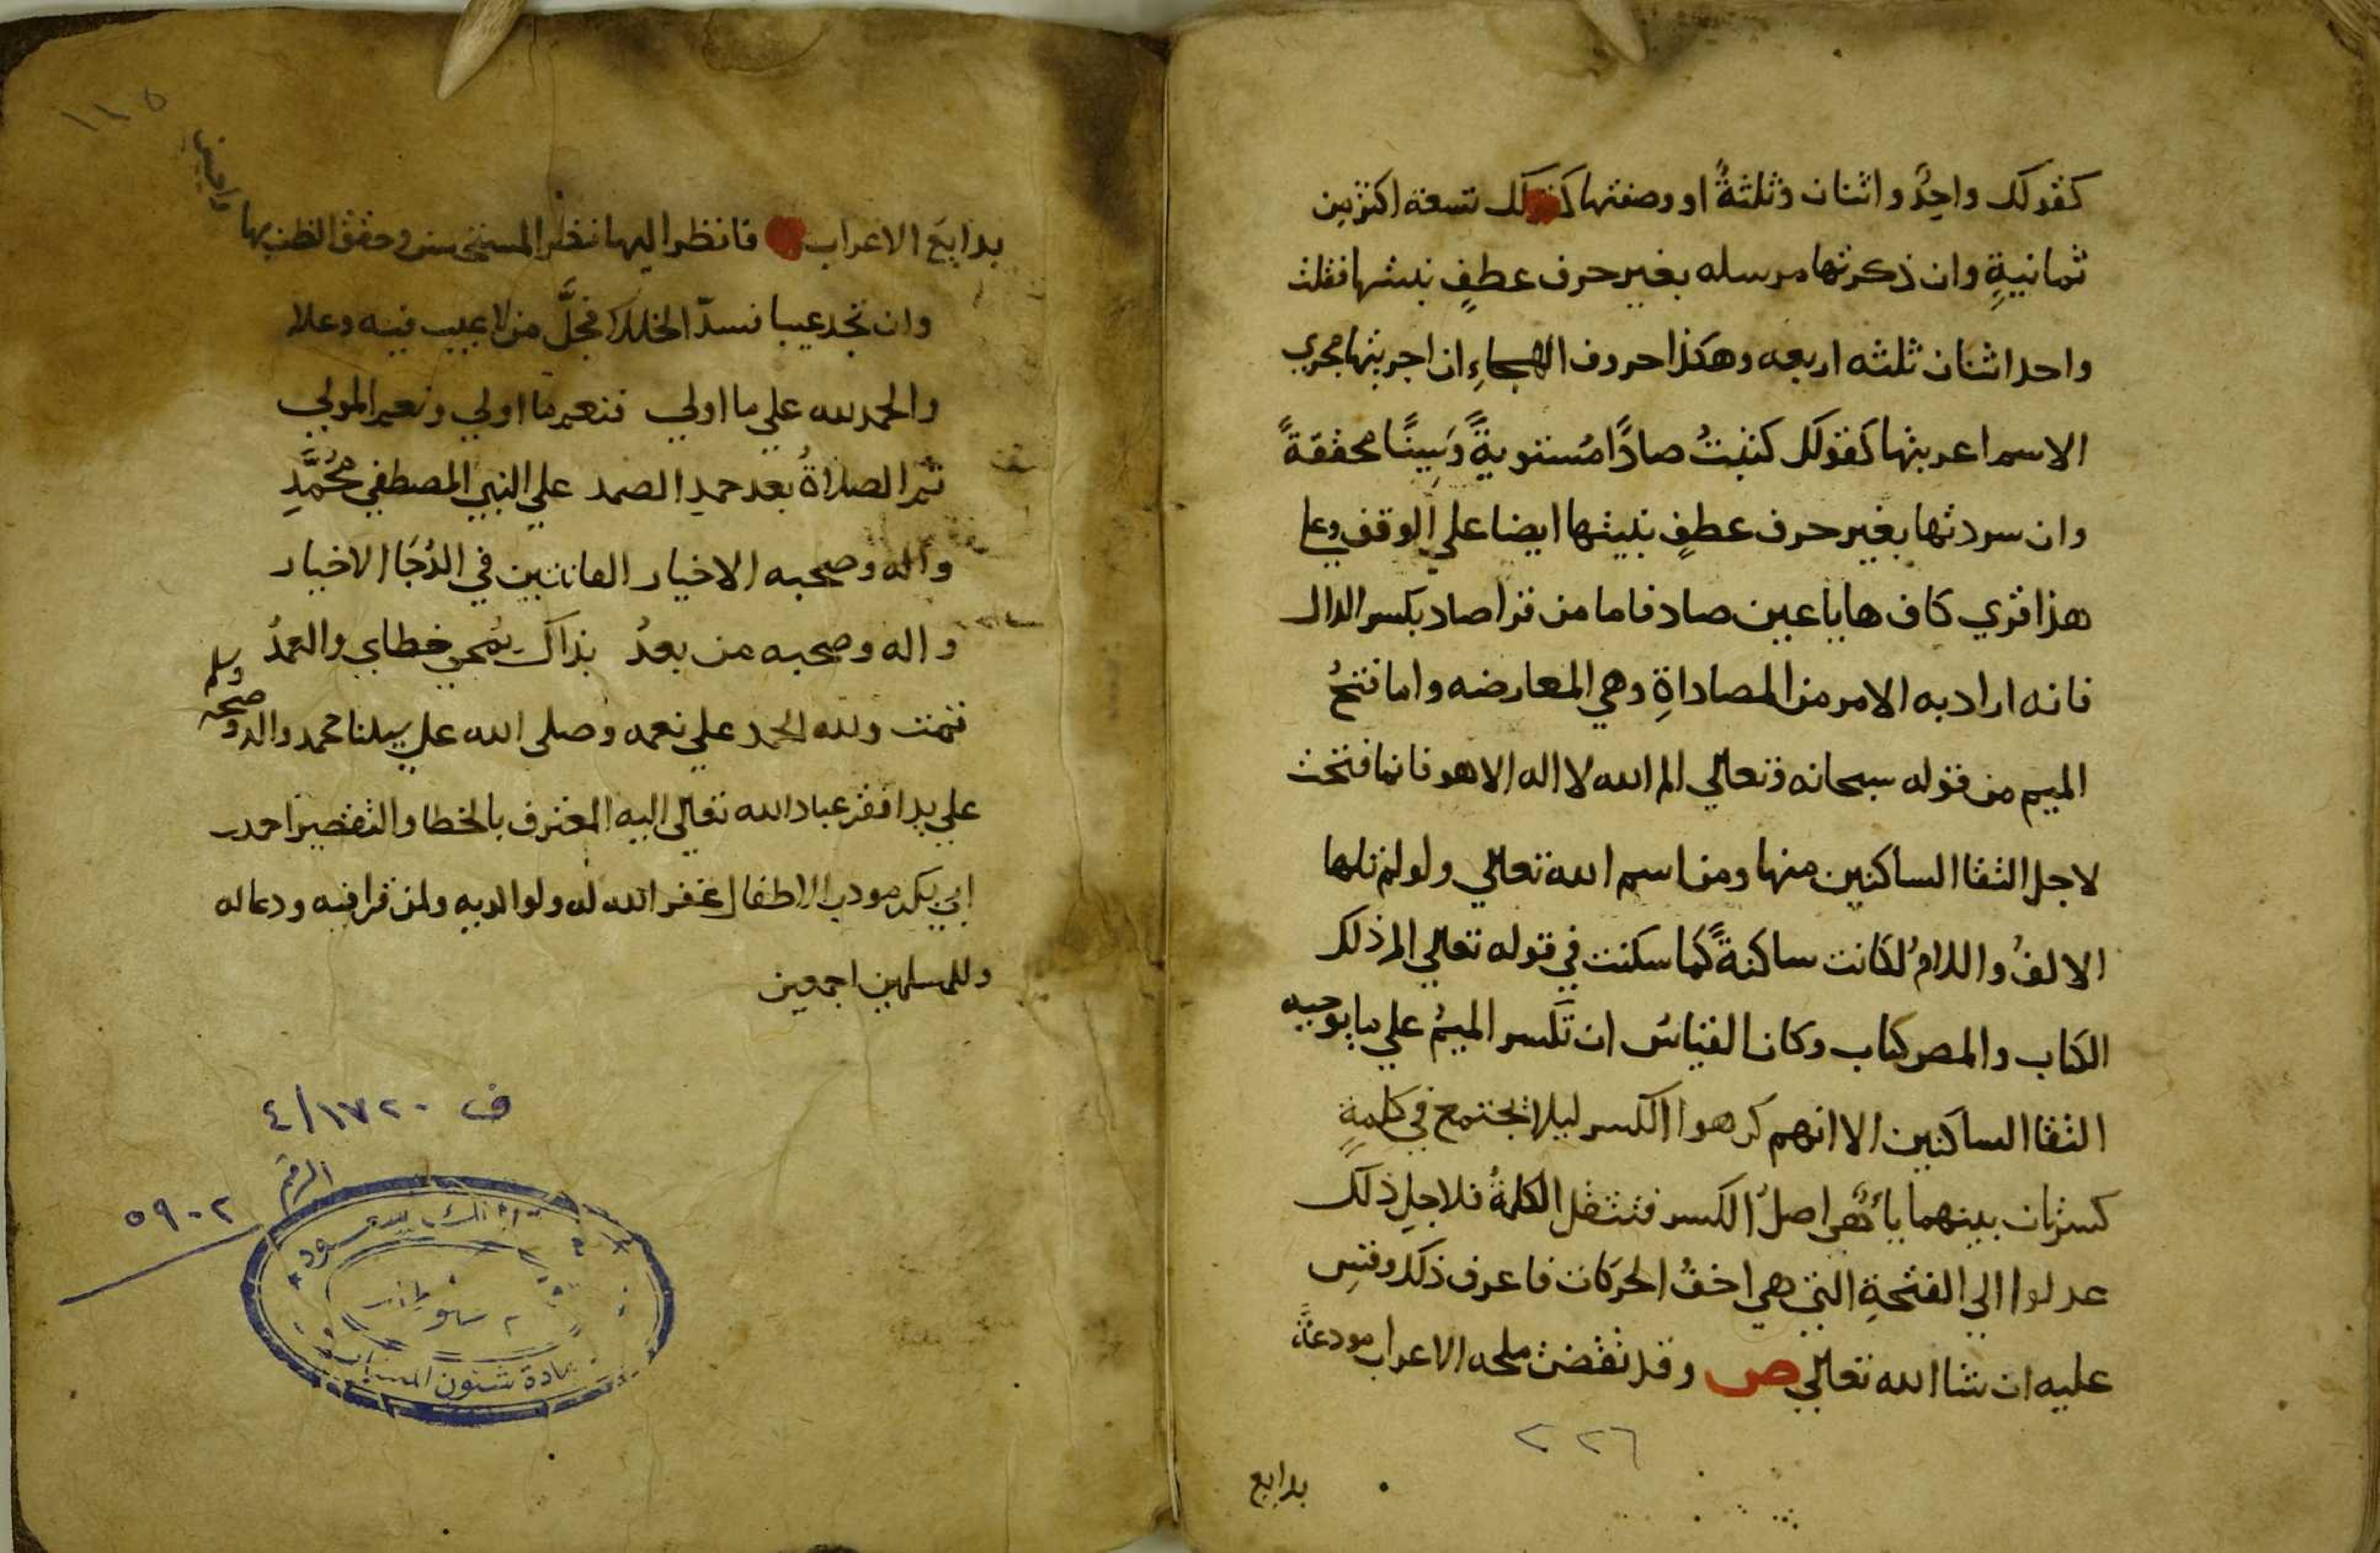 كقولك واحِدٌ واثنان وثلثةٌ او وصفتها كقولك تسعة اكثر من
ثمانيةِ وان ذكرتها مرسله بغير حرف عطفٍ بنيتها فقلت
واحد اثنان ثلثه اربعه وهكذا حروف الهجاءِ ان اجريتها مجري
الاسم اعربتها كقولك كتبتُ صادًا مُستويةً وَسِينًا محققةً
وان سردتها بغير حرف عطفٍ بنيتها ايضا علي الوقف وعلي
هذا قري كاف ها يا عين صاد فاما من قرا صاد بكسر الدال
فانه اراد به الامر من المصاداةِ وهي المعارضه واما فتحُ
الميم من قوله سبحانه وتعالي الم الله لا اله الا هو فانما فتحت
لاجل التقا الساكنين منها ومن اسم الله تعالي ولو لم تلها
الالفُ واللامُ لكانت ساكنةً كما سكنت في قوله تعالي الم ذلك
الكتاب والمص كتاب وكان القياسُ ان تكسر الميمُ علي ما يوجبه
التقا الساكنين الا انهم كرهوا الكسر ليلا تجتمع في كلمةٍ
كسرتان بينهما ياءٌ هي اصلُ الكسر فتثقل الكلمةُ فلاجلِ ذلك
عدلوا الي الفتحةِ التي هي اخفُ الحركات فاعرف ذلك وقس
عليه ان شا الله تعالي ص وقد تقضت ملحه الاعراب مودعةً
٢٢٦
بدايع
١١٥
بدايعَ الاعراب فانظر اليها نظر المستحسن وحقق الظن بها
وان تجد عيبا فسدّ الخللا فجلَّ من لا عيب فيه وعلا
والحمد لله علي ما اولي فنعم ما اولي ونعم المولي
ثم الصلاةُ بعد حمدِ الصمد علي النبي المصطفي مُحَمَّدِ
وآله وصحبه الاخيار القانتين في الدُجَا الاخيار
واله وصحبه من بعدُ بذاك يُمحي خطاي والعمدُ
تمت ولله الحمد علي نعمه وصلى الله علي سيدنا محمد واله وصحبه وسلم
علي يد افقر عباد الله تعالي اليه المعترف بالخطا والتقصير احمد بن
ابي بكر مودب الاطفال غفر الله له ولوالديه ولمن قرا فيه ودعا له
وللمسلمين اجمعين
ف ١٧٢٠/٤
الرقم
٥٩٠٢
عمادة شئون المكتبات